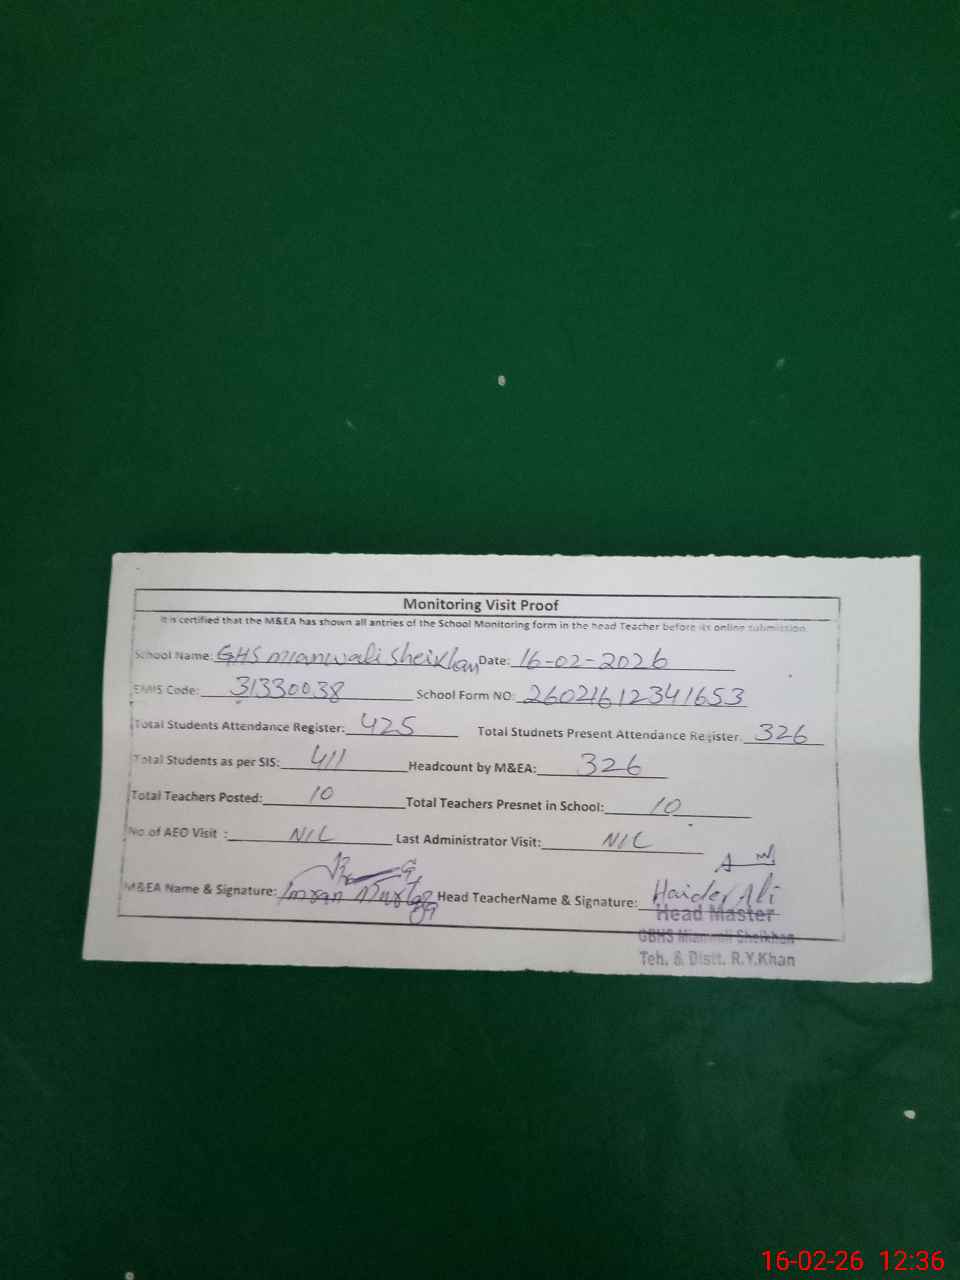 Monitoring Visit Proof
It is certified that the M&EA has shown all antries of the School Monitoring form in the head Teacher before its online submission.
School Name: GHS Mianwali Sheikhan Date: 16-02-2026
EMIS Code: 31330038 School Form NO: 26021612341653
Total Students Attendance Register: 425 Total Studnets Present Attendance Register. 326
Total Students as per SIS: 411 Headcount by M&EA: 326
Total Teachers Posted: 10 Total Teachers Presnet in School: 10
No.of AEO Visit : NIL Last Administrator Visit: NIL
M&EA Name & Signature: Imran Mushtaq Head TeacherName & Signature: Haider Ali
Head Master
GBHS Mianwali Sheikhan
Teh. & Distt. R.Y.Khan
16-02-26 12:36